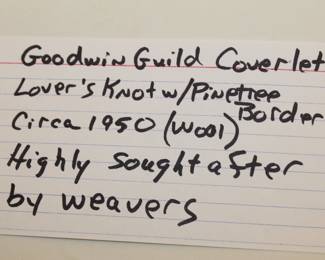 Goodwin Guild Coverlet
Lover's Knot w/Pinetree
Border
Circa 1950 (Wool)
Highly sought after
by weavers